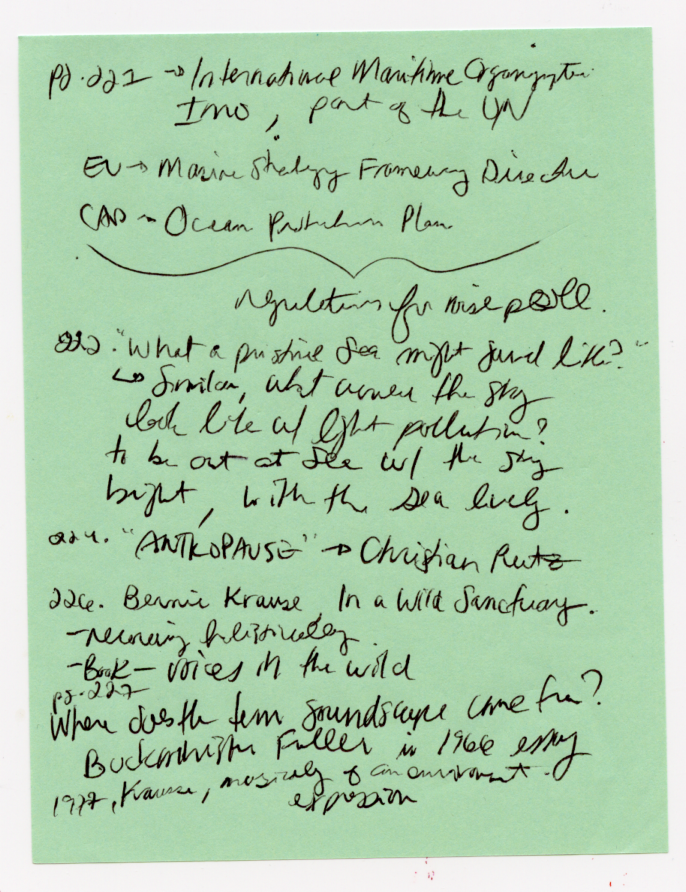 pg. 221 → International Maritime Organization
IMO, part of the UN
EU → Marine Strategy Framework Directive
CAD → Ocean Protections Plan
regulations for noise poll.
222. "What a pristine Sea might sound like?"
↳ Similar, what would the sky
look like w/ light pollution?
to be out at See w/ the sky
bright, with the sea lively.
224. "ANTROPAUSE" → Christian Rutz
226. Bernie Krause, In a Wild Sanctuary.
- recording holistically.
- Book — voices in the wild
pg. 227
Where does the term soundscape come from?
Buckminster Fuller in 1966 essay
Krause, musicaly of an environment.
expression